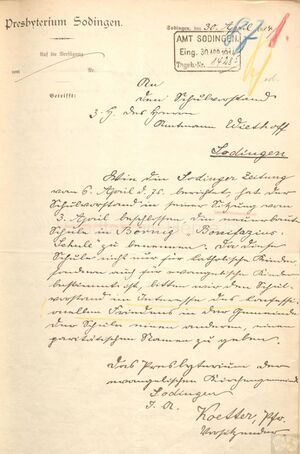 Presbyterium Sodingen.
Sodingen, den 30. April 1914
AMT SODINGEN
Eing. 30 APR 1914
Tageb.-Nr. 1428
Auf die Verfügung
vom Nr.
Betrifft:
An
den Schulvorstand
z. H. des Herrn
Amtmann Wiethoff
Sodingen
Wie die Sodinger Zeitung
vom 6. April d. Js. berichtet, hat der
Schulvorstand in seiner Sitzung vom
3. April beschlossen die neuerbaute
Schule in Börnig Bonifazius-
Schule zu benennen. Da diese
Schule nicht nur für katholische Kinder
sondern auch für evangelische Kinder
bestimmt ist, bitten wir den Schul-
vorstand im Interesse des konfessi-
onellen Friedens in der Gemeinde
der Schule einen anderen, einen
paritätischen Namen zu geben.
Das Presbyterium der
evangelischen Kirchengemeinde
Sodingen
I. A.
Koetter, Pfr.
Vorsitzender